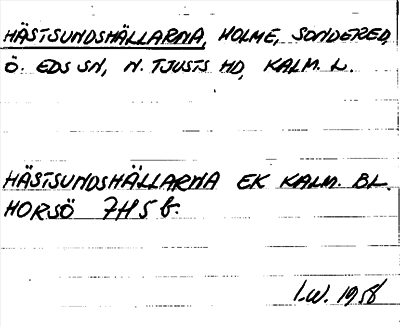 HÄSTSUNDSHÄLLARNA, HOLME, SONDERED,
Ö. EDS SN, N. TJUSTS HD, KALM. L.
HÄSTSUNDSHÄLLARNA EK KALM. BL.
HORSÖ 7H5f.
I.W. 1958